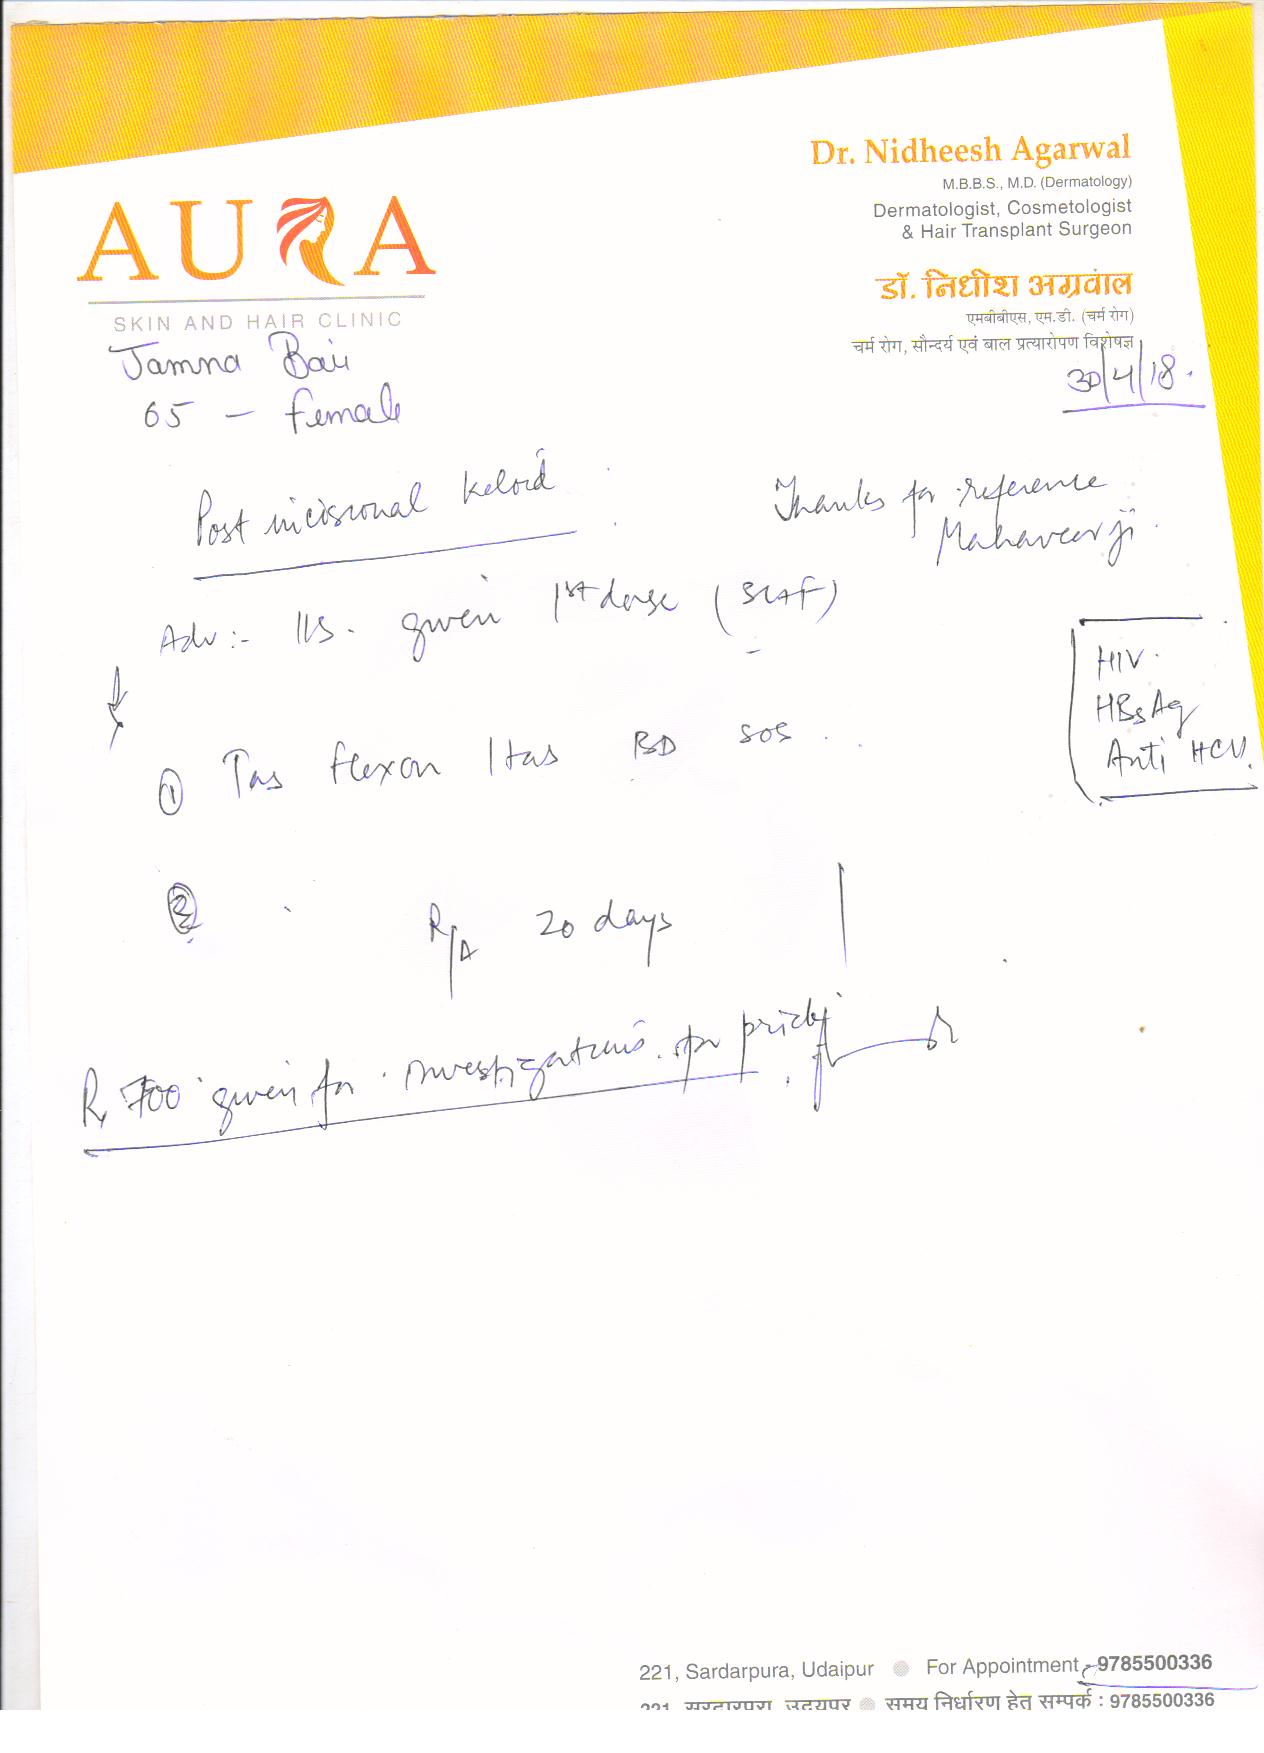 Dr. Nidheesh Agarwal
M.B.B.S., M.D. (Dermatology)
Dermatologist, Cosmetologist
& Hair Transplant Surgeon
डॉ. निधीश अग्रवाल
एमबीबीएस, एम.डी. (चर्म रोग)
चर्म रोग, सौन्दर्य एवं बाल प्रत्यारोपण विशेषज्ञ
AURA
SKIN AND HAIR CLINIC
Jamna Bai
65 - female
30/4/18
Post incisional keloid
Thanks for reference
Mahaveer ji
Adv :- given 1st dose
HIV
HBsAg
Anti HCV
① Tab flexon 1 tab BD SOS
②
R/A 20 days
700 given for investigations
221, Sardarpura, Udaipur For Appointment - 9785500336
221, सरदारपुरा, उदयपुर समय निर्धारण हेतु सम्पर्क : 9785500336